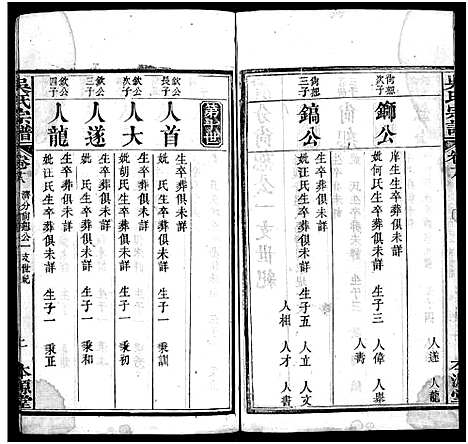 吳氏宗譜
卷六
人遂 人龍
庠生生卒葬俱未詳
尚恕次子
鉚公
妣何氏生卒葬俱未詳 生子三 人偉 人舉
人壽
尚恕三子
鎬公
生卒葬俱未詳
妣汪氏生卒葬俱未詳 生子五 人立 人文
人相 人才 人壽
欽公長子
人首
生卒葬俱未詳
妣 氏生卒葬俱未詳 生子一 秉訓
欽公次子
人大
生卒葬俱未詳
妣胡氏生卒葬俱未詳 生子一 秉初
欽公三子
人遂
生卒葬俱未詳
妣 氏生卒葬俱未詳 生子一 秉和
欽公四子
人龍
生卒葬俱未詳
妣汪氏生卒葬俱未詳 生子一 秉正
吳氏宗譜
公一支世紀
本源堂